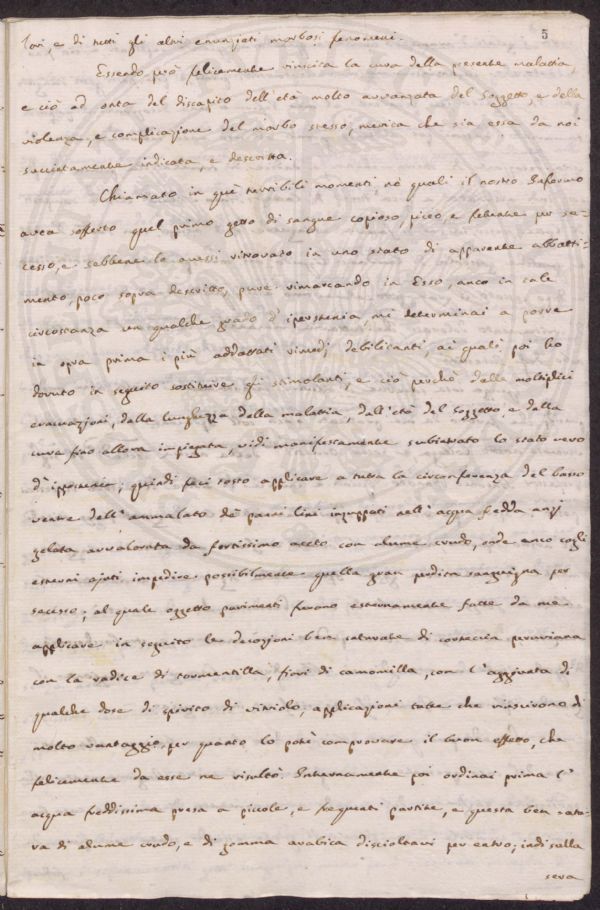 5
lori, e di tutti gli altri enunziati morbosi fenomeni.
Essendo però felicemente riuscita la cura della presente malattia,
e ciò ad onta del discapito dell'età molto avvanzata del Soggetto, e della
violenza, e complicazione del morbo stesso, merita che sia essa da noi
succintamente indicata, e descritta.
Chiamato in que' terribili momenti ne' quali il nostro Infermo
avea sofferto quel primo getto di sangue copioso, piceo, e fetente per se-
cesso, e sebbene lo avessi ritrovato in uno stato di apparente abbatti-
mento, poco sopra descritto, pure rimarcando in Esso, anco in tale
circostanza un qualche grado d'iperstenia, mi determinai a porre
in opra prima i più addattati rimedj debilitanti, ai quali poi ho
dovuto in seguito sostituire gli stimolanti, e ciò perchè dalle moltiplici
evacuazioni, dalla lunghezza della malattia, dall'età del Soggetto, e dalla
cura fino allora impiegata, vidi manifestamente subentrato lo stato vero
d'ipostenia; quindi feci tosto applicare a tutta la circonferenza del basso
ventre dell'ammalato de' panni lini inzuppati nell'acqua fredda anzi
gelata avvalorata da fortissimo aceto con alume crudo, onde anco cogli
esterni ajuti impedire possibilmente quella gran perdita sanguigna per
secesso; al quale oggetto parimenti furono esternamente fatte da me
applicare in seguito le decozioni ben saturate di corteccia peruviana
con la radice di tormentilla, fiori di camomilla, con l'aggiunta di
qualche dose di spirito di vitriolo, applicazioni tutte che riuscirono di
molto vantaggio, per quanto lo potè comprovare il buon effetto, che
felicemente da esse ne risultò. Internamente poi ordinai prima l'
acqua freddissima presa a piccole, e frequenti partite, e questa ben satu-
ra di alume crudo, e di gomma arabica discioltavi per entro; indi sulla
sera